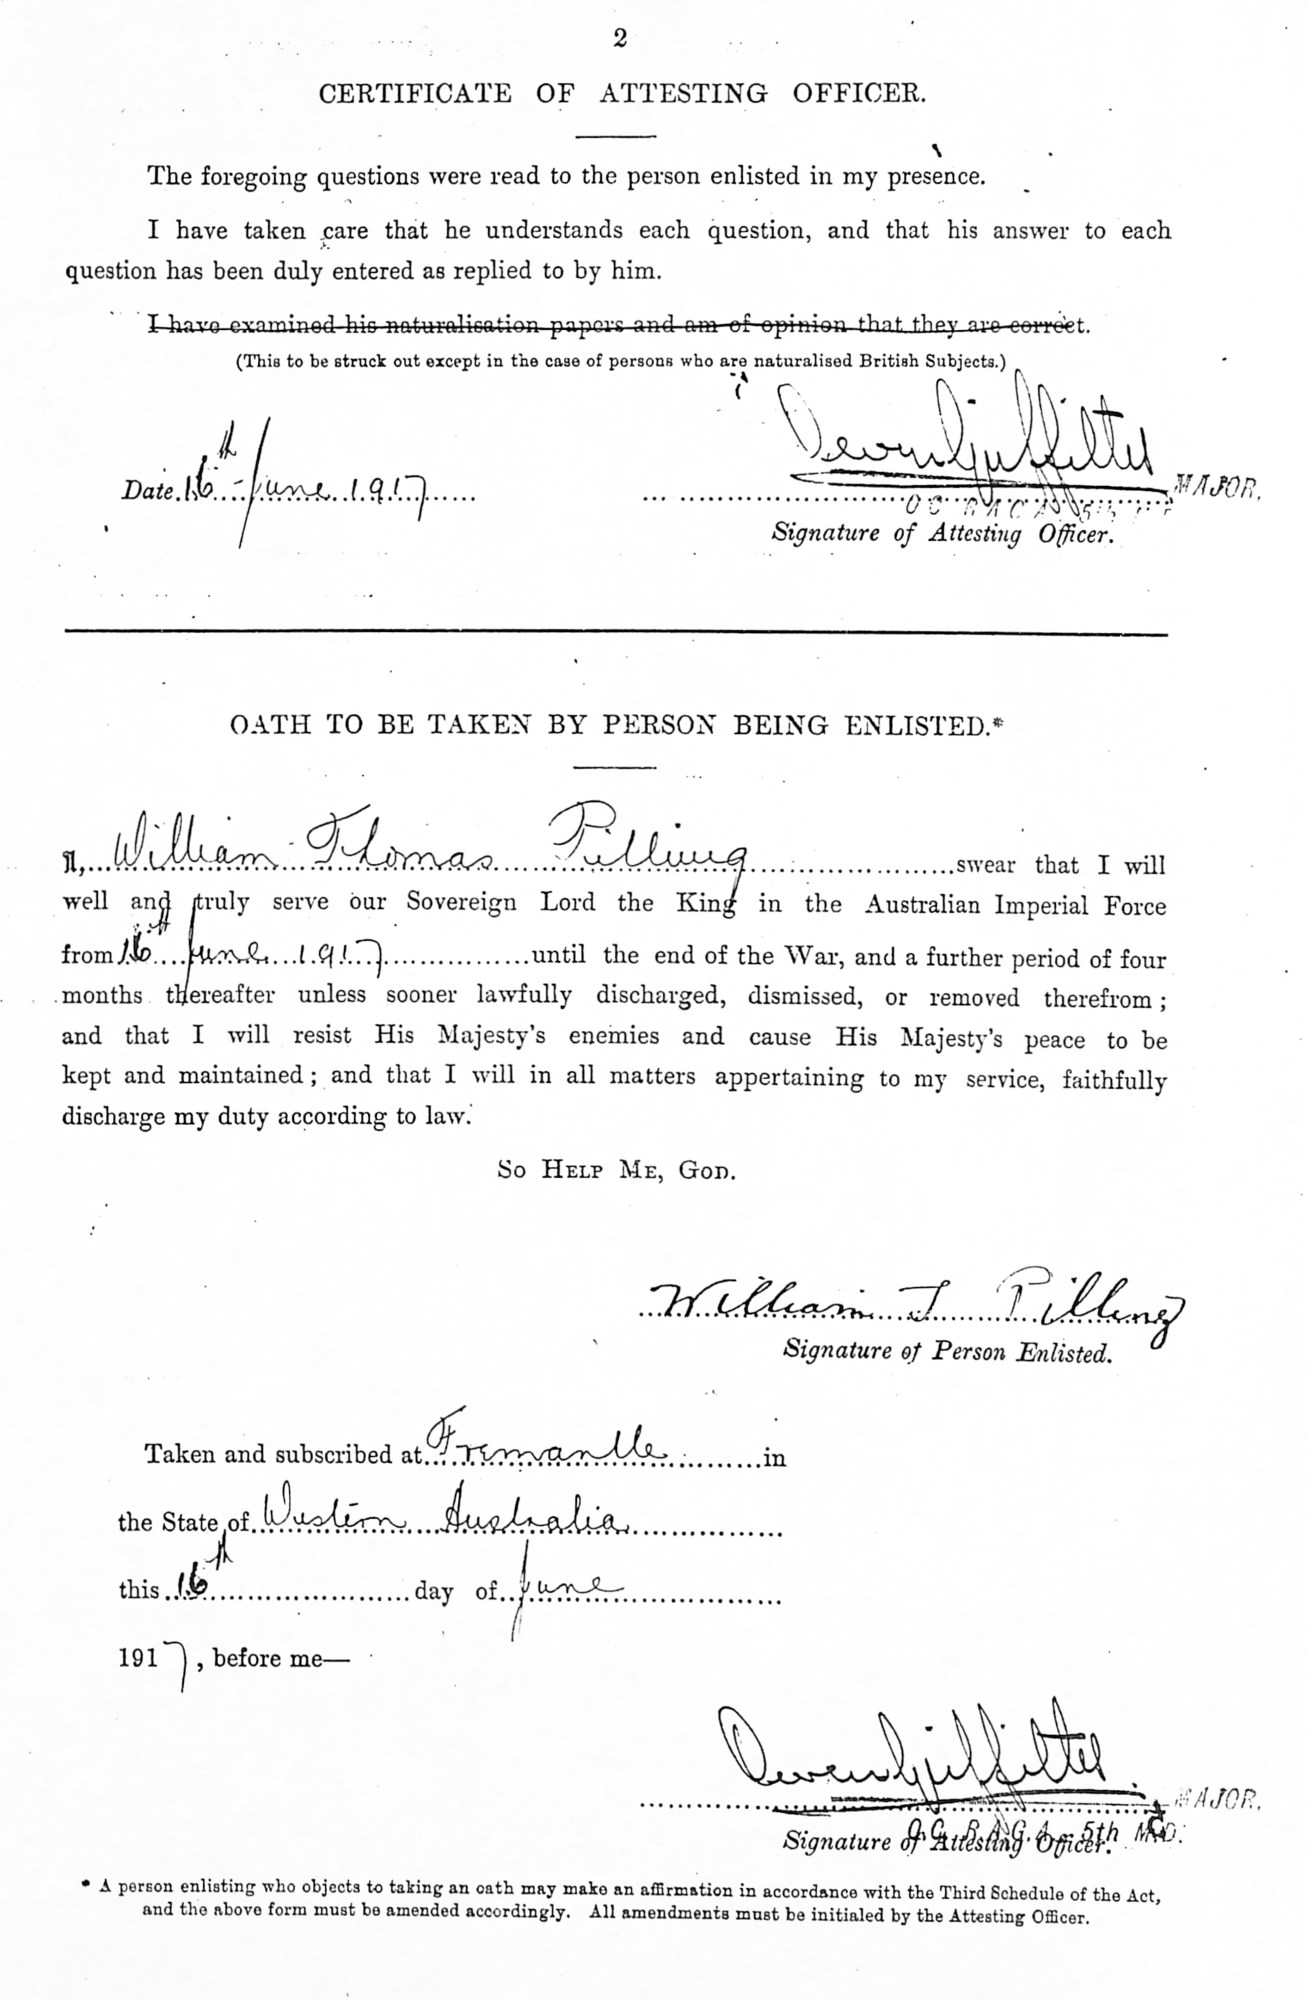 2
CERTIFICATE OF ATTESTING OFFICER.
The foregoing questions were read to the person enlisted in my presence.
I have taken care that he understands each question, and that his answer to each
question has been duly entered as replied to by him.
I have examined his naturalisation papers and am of opinion that they are correct.
(This to be struck out except in the case of persons who are naturalised British Subjects.)
Date 16th June 1917
MAJOR.
Signature of Attesting Officer.
OATH TO BE TAKEN BY PERSON BEING ENLISTED.*
I, William Thomas Pilling swear that I will
well and truly serve our Sovereign Lord the King in the Australian Imperial Force
from 16th June 1917 until the end of the War, and a further period of four
months thereafter unless sooner lawfully discharged, dismissed, or removed therefrom;
and that I will resist His Majesty's enemies and cause His Majesty's peace to be
kept and maintained; and that I will in all matters appertaining to my service, faithfully
discharge my duty according to law.
SO HELP ME, GOD.
William T Pilling
Signature of Person Enlisted.
Taken and subscribed at Fremantle in
the State of Western Australia
this 16th day of June
1917, before me—
MAJOR.
O.C. R.A.G.A. 5th M.D.
Signature of Attesting Officer.
* A person enlisting who objects to taking an oath may make an affirmation in accordance with the Third Schedule of the Act,
and the above form must be amended accordingly. All amendments must be initialed by the Attesting Officer.